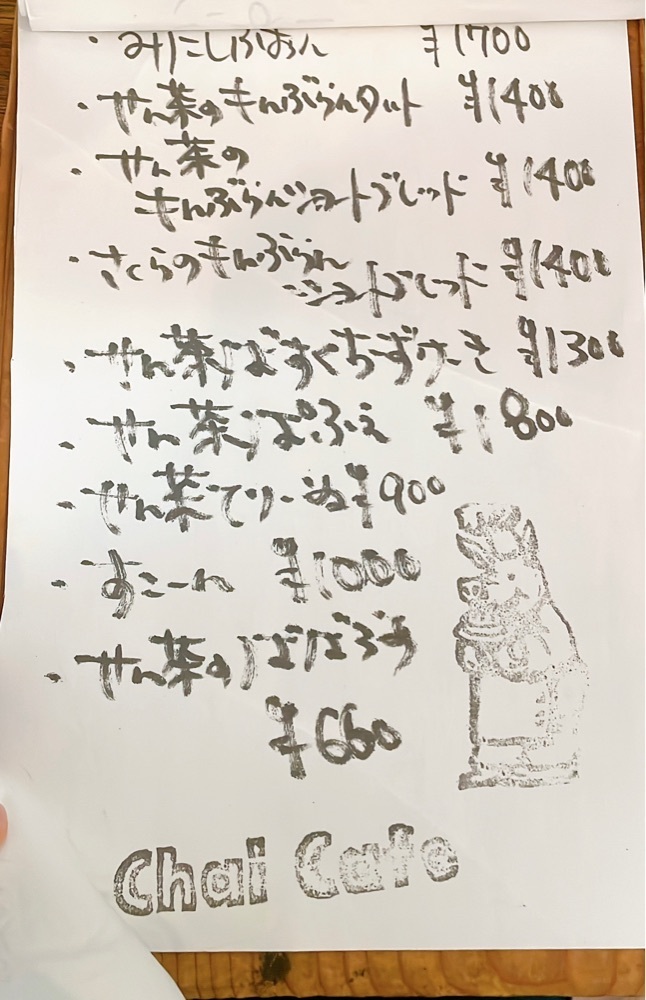 ・みにしふぉん ¥1700
・せん茶のもんぶらんタルト ¥1400
・せん茶の
もんぶらんショートブレッド ¥1400
・さくらのもんぶらん
ショートブレッド ¥1400
・せん茶ばすくちーずけーき ¥1300
・せん茶ぱふぇ ¥1800
・せん茶てりーぬ ¥900
・すこーん ¥1000
・せん茶のばばろあ
¥660
Chai Cafe